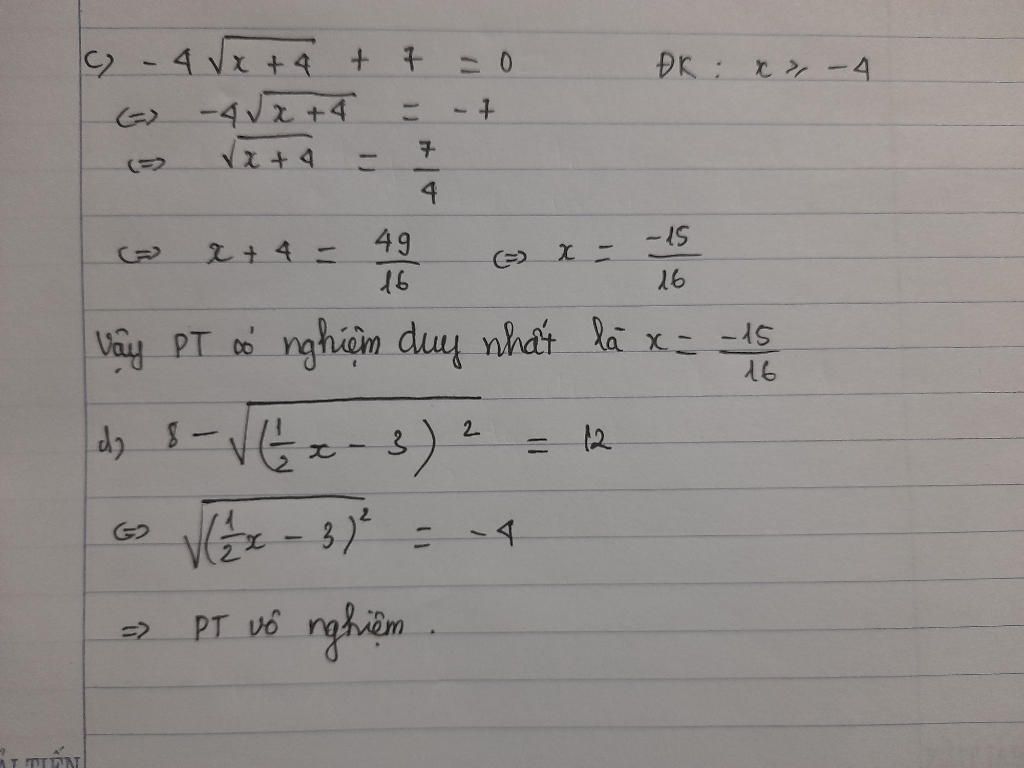 c) -4√(x+4) + 7 = 0 ĐK: x ≥ -4
<=> -4√(x+4) = -7
<=> √(x+4) = 7/4
<=> x + 4 = 49/16 <=> x = -15/16
Vậy PT có nghiệm duy nhất là x = -15/16
d) 8 - √((1/2 x - 3)²) = 12
<=> √((1/2 x - 3)²) = -4
=> PT vô nghiệm.
ẢI TIẾN